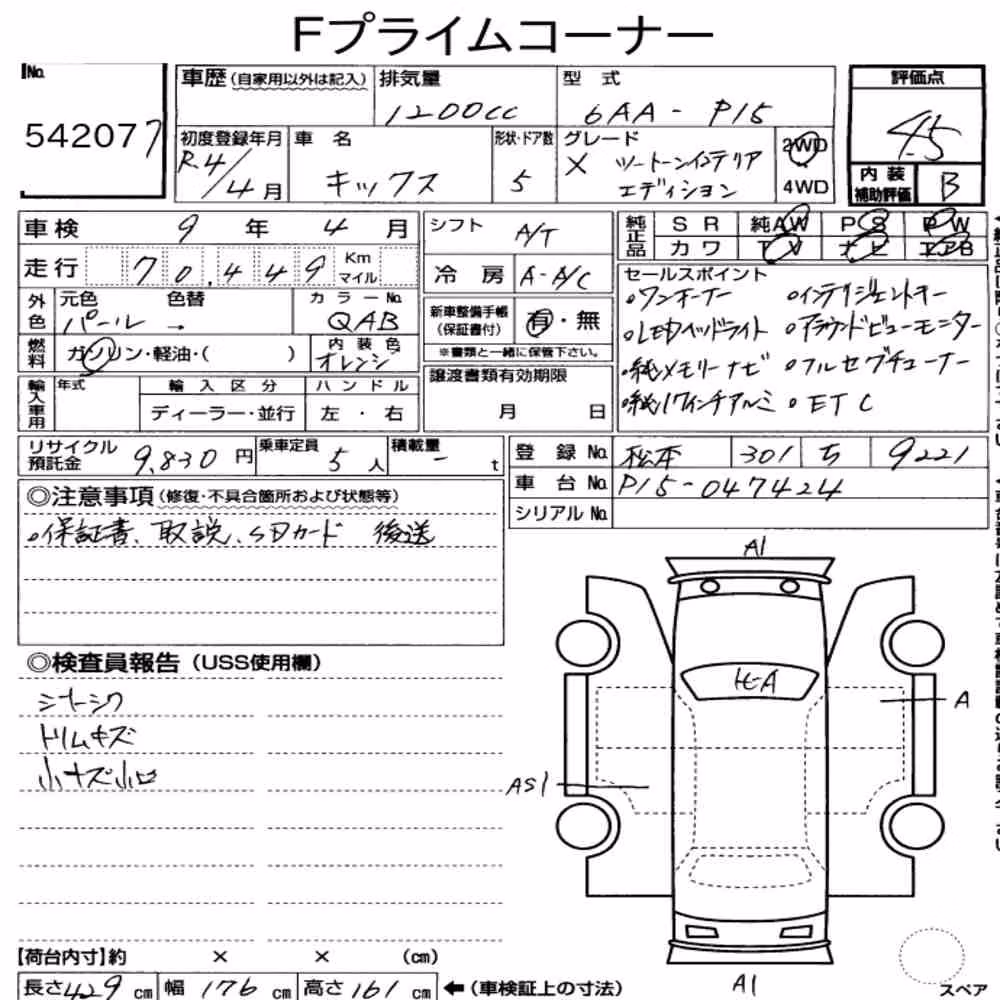 Fプライムコーナー
No. 542077
車歴(自家用以外は記入)
排気量 1200cc
型式 6AA-P15
評価点 4.5
初度登録年月 R.4/4月
車名 キックス
形状・ドア数 5
グレード X ツートーンインテリアエディション
2WD
4WD
内装補助評価 B
車検 9年 4月
シフト A/T
純正品 SR 純AW PS PW
カワ TV ナビ エアB
走行 70,449 Km マイル
冷房 A-A/C
セールスポイント
外色 元色 パール → 色替
カラーNo. QAB
新車整備手帳(保証書付) 有・無
※書類と一緒に保管下さい。
◦ワンオーナー ◦インテリジェントキー
◦LEDヘッドライト ◦アラウンドビューモニター
◦純メモリーナビ ◦フルセグチューナー
◦純17インチアルミ ◦ETC
燃料 ガソリン・軽油・( )
内装色 オレンジ
譲渡書類有効期限
月 日
輸入車用 年式
輸入区分 ディーラー・並行
ハンドル 左・右
リサイクル預託金 9,830円
乗車定員 5人
積載量 - t
登録No. 松本 301 ち 9221
車台No. P15-047424
シリアルNo.
◎注意事項(修復・不具合箇所および状態等)
◦保証書、取説、SDカード 後送
◎検査員報告(USS使用欄)
シートシワ
トリムキズ
小キズ小凹
A1
A
AS1
A1
【荷台内寸】約 × × (cm)
長さ429cm 幅176cm 高さ161cm ←(車検証上の寸法)
スペア